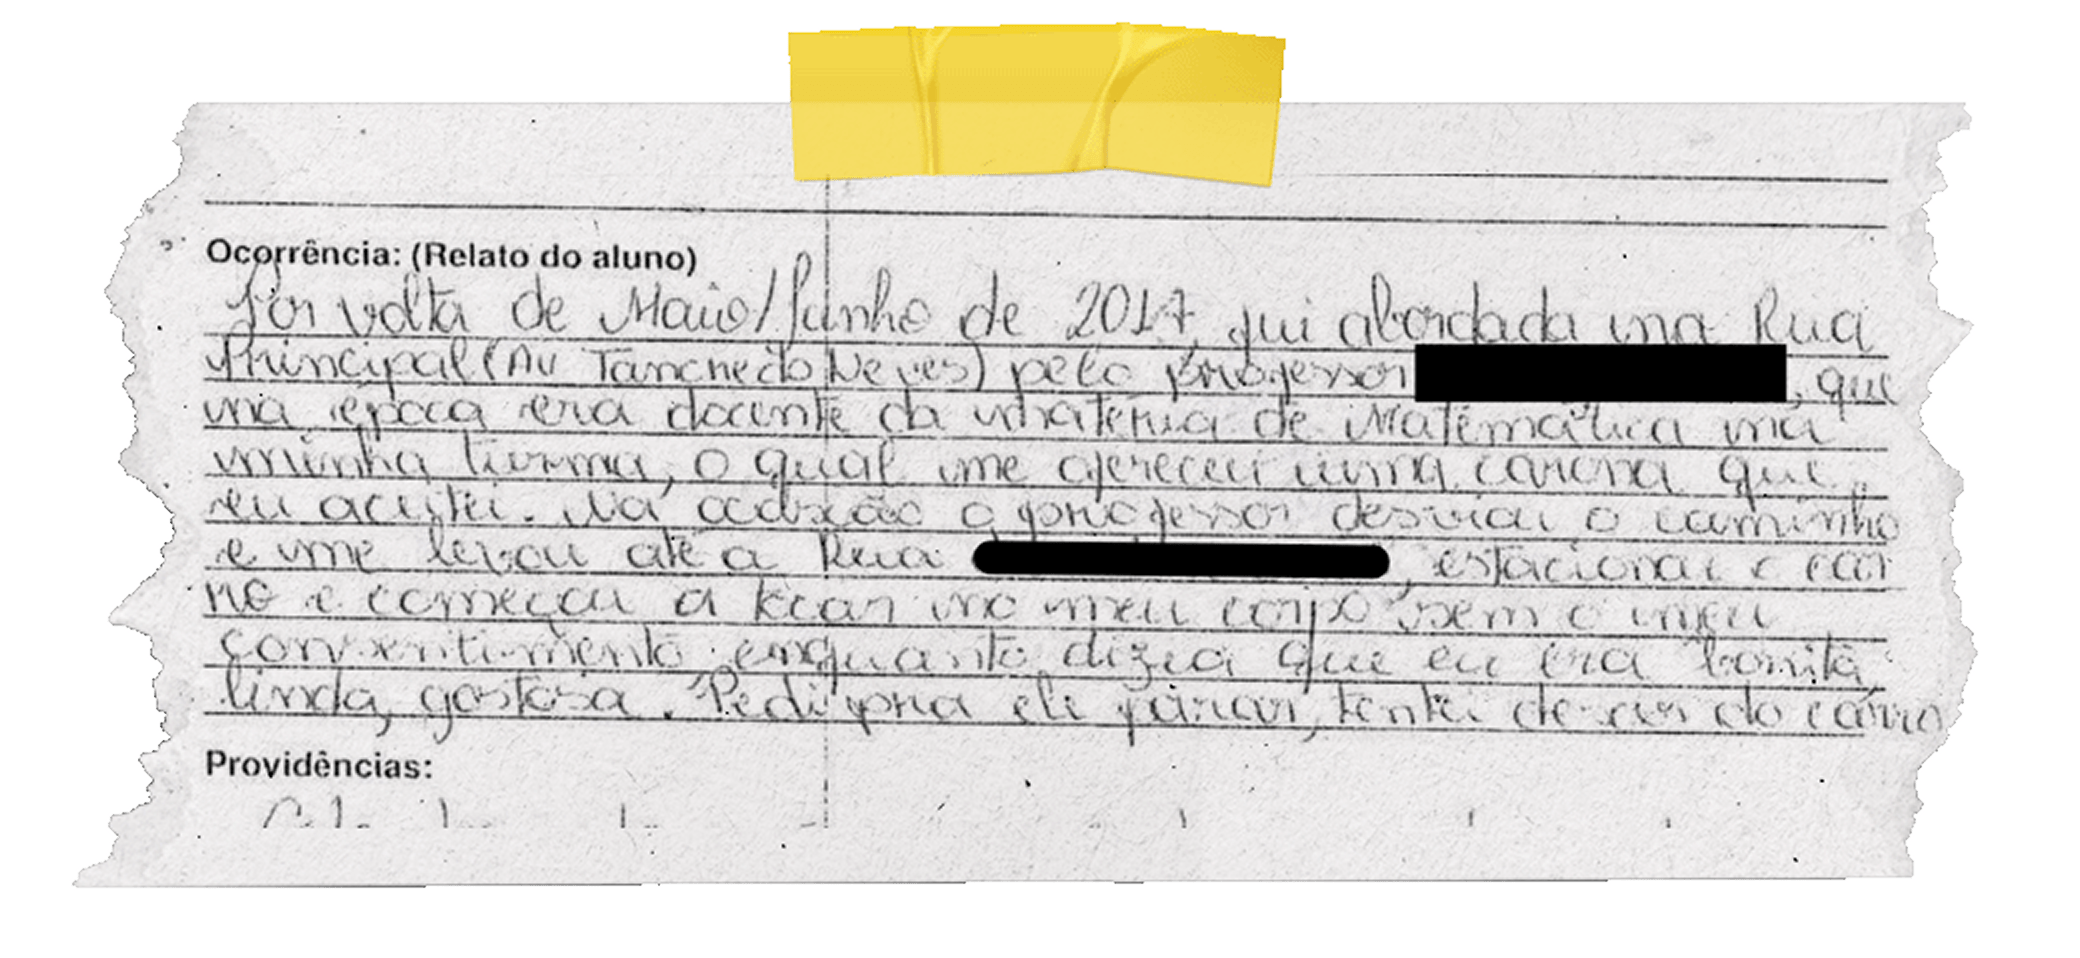 Ocorrência: (Relato do aluno)
Por volta de Maio/Junho de 2017, fui abordada na Rua
Principal (Av Tancredo Neves) pelo professor , que
na época era docente da matéria de Matemática na
minha turma, o qual me ofereceu uma carona que
eu aceitei. Na ocasião o professor desviou o caminho
e me levou até a Rua , estacionou o car
ro e começou a tocar no meu corpo sem o meu
consentimento enquanto dizia que eu era bonita,
linda, gostosa. Pedi pra ele parar, tentei descer do carro
Providências: